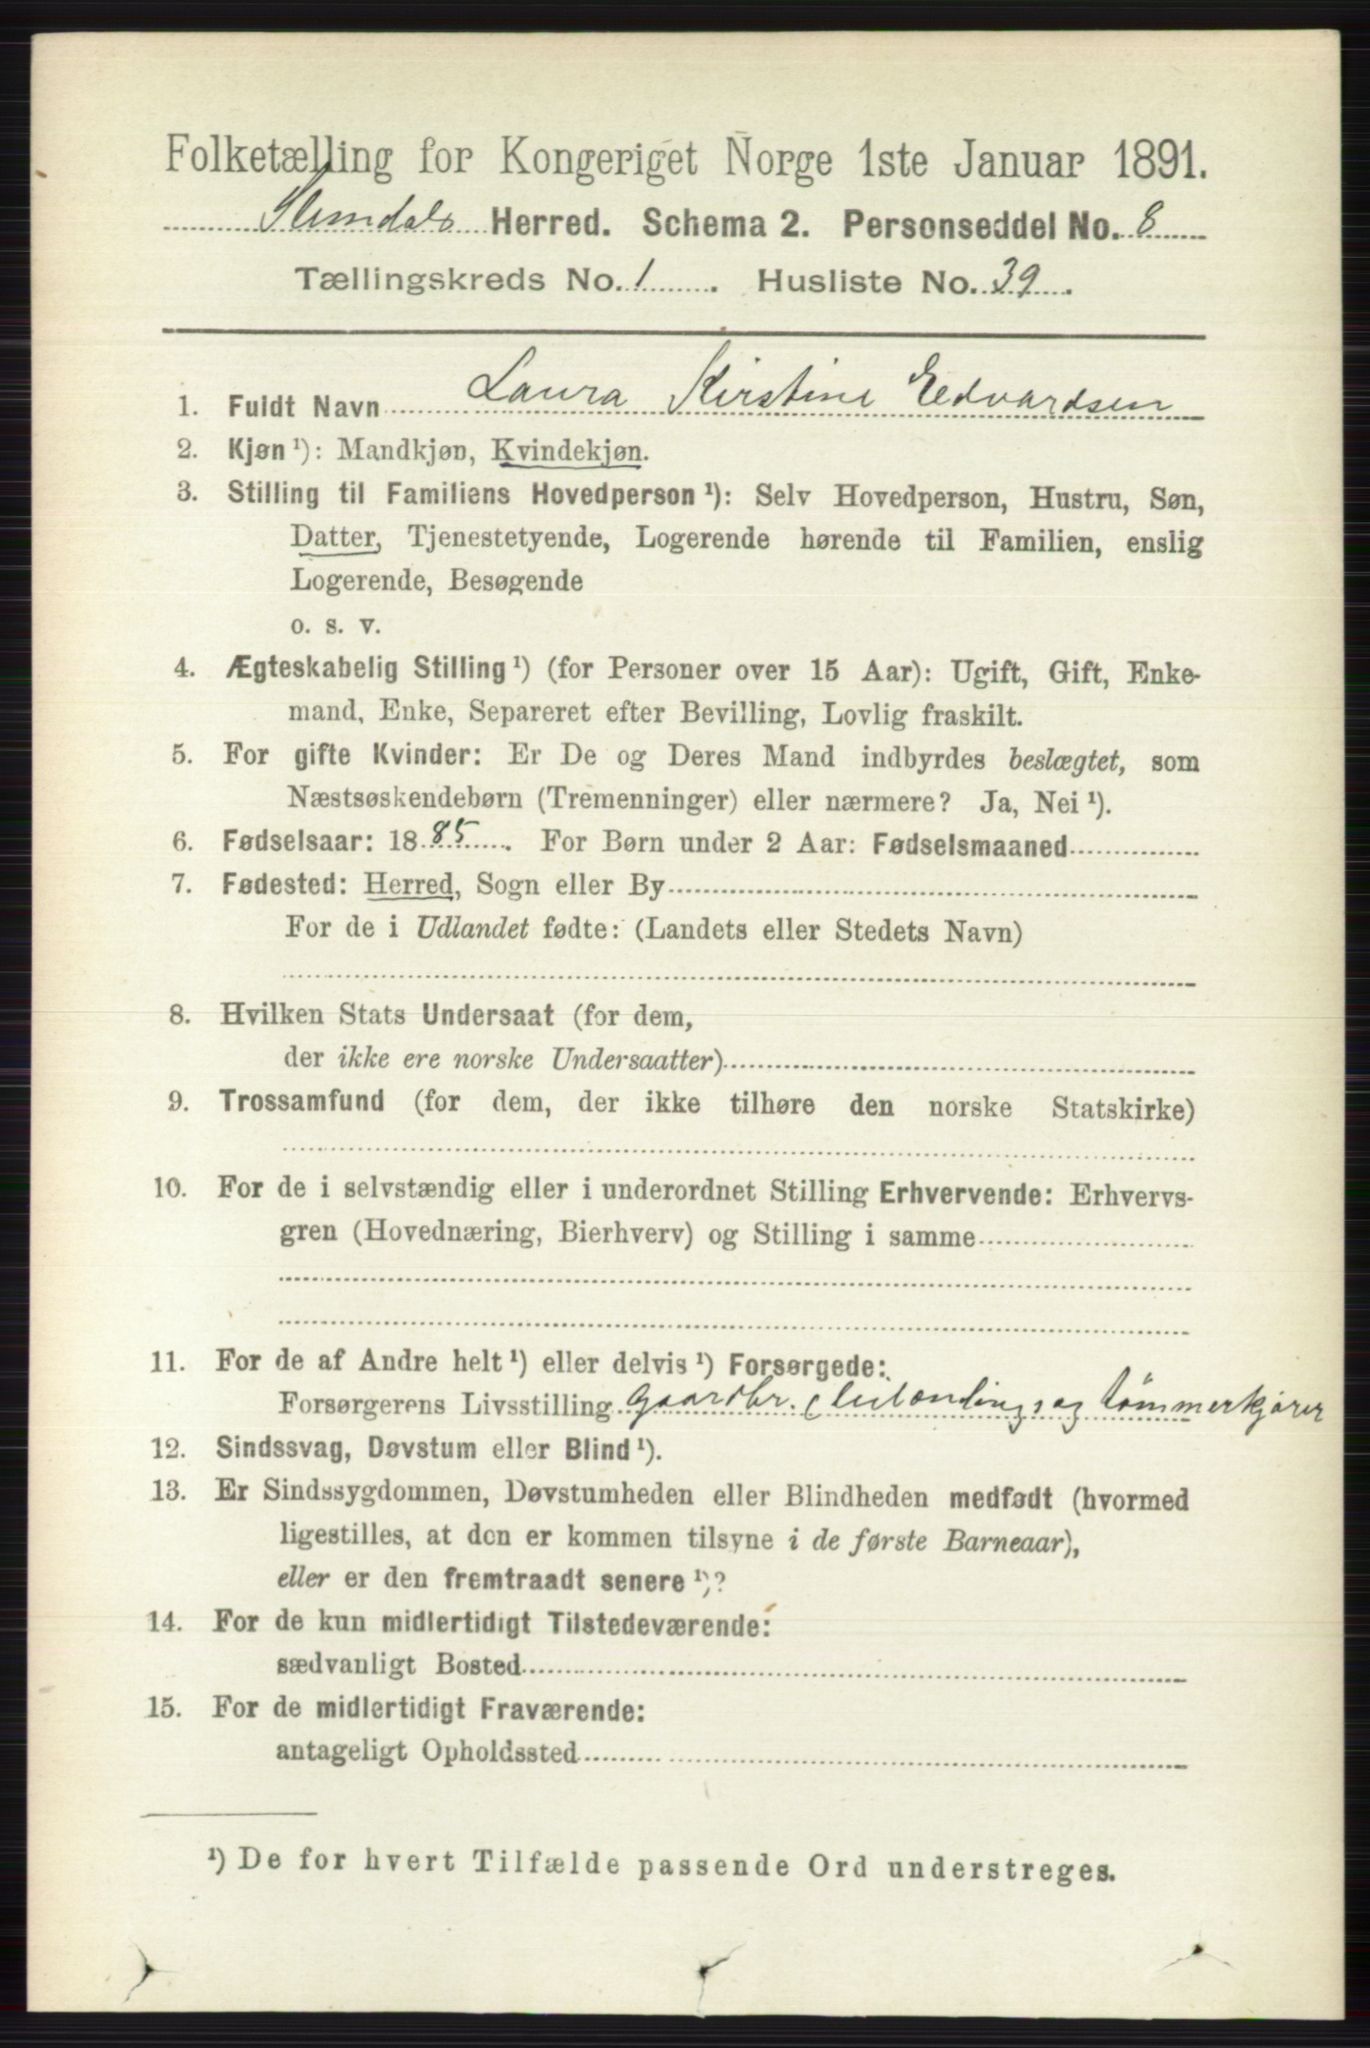 Folketælling for Kongeriget Norge 1ste Januar 1891.
Slemdals Herred. Schema 2. Personseddel No. 8
Tællingskreds No. 1. Husliste No. 39.
1. Fuldt Navn Laura Kirstine Edvardsen
2. Kjøn ¹): Mandkjøn, Kvindekjøn.
3. Stilling til Familiens Hovedperson ¹): Selv Hovedperson, Hustru, Søn,
Datter, Tjenestetyende, Logerende hørende til Familien, enslig
Logerende, Besøgende
o. s. v.
4. Ægteskabelig Stilling ¹) (for Personer over 15 Aar): Ugift, Gift, Enke-
mand, Enke, Separeret efter Bevilling, Lovlig fraskilt.
5. For gifte Kvinder: Er De og Deres Mand indbyrdes beslægtet, som
Næstsøskendebørn (Tremenninger) eller nærmere? Ja, Nei ¹).
6. Fødselsaar: 1885. For Børn under 2 Aar: Fødselsmaaned
7. Fødested: Herred, Sogn eller By
For de i Udlandet fødte: (Landets eller Stedets Navn)
8. Hvilken Stats Undersaat (for dem,
der ikke ere norske Undersaatter)
9. Trossamfund (for dem, der ikke tilhøre den norske Statskirke)
10. For de i selvstændig eller i underordnet Stilling Erhvervende: Erhvervs-
gren (Hovednæring, Bierhverv) og Stilling i samme
11. For de af Andre helt ¹) eller delvis ¹) Forsørgede:
Forsørgerens Livsstilling Gaardbr. og tømmerkjører
12. Sindssvag, Døvstum eller Blind ¹).
13. Er Sindssygdommen, Døvstumheden eller Blindheden medfødt (hvormed
ligestilles, at den er kommen tilsyne i de første Barneaar),
eller er den fremtraadt senere ¹)?
14. For de kun midlertidigt Tilstedeværende:
sædvanligt Bosted
15. For de midlertidigt Fraværende:
antageligt Opholdssted
¹) De for hvert Tilfælde passende Ord understreges.